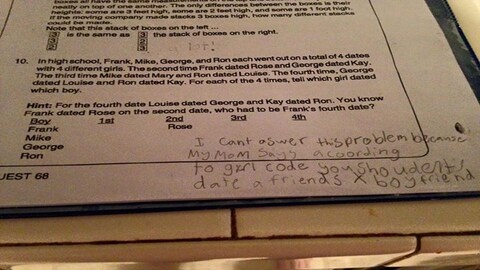 boxes so have the same
neatly on top of one another. The only differences between the boxes is their
heights: some are 3 feet high, some are 2 feet high, and some are 1 foot high.
If the moving company made stacks 3 boxes high, how many different stacks
could be made.
Note that this stack of boxes on the left ...
is the same as the stack of boxes on the right.
10. In high school, Frank, Mike, George, and Ron each went out on a total of 4 dates
with 4 different girls. The second time Frank dated Rose and George dated Kay.
The third time Mike dated Mary and Ron dated Louise. The fourth time, George
dated Louise and Ron dated Kay. For each of the 4 times, tell which girl dated
which boy.
Hint: For the fourth date Louise dated George and Kay dated Ron. You know
Frank dated Rose on the second date, who had to be Frank's fourth date?
Boy 1st 2nd 3rd 4th
Frank Rose
Mike
George
Ron
I cant aswer this problem because
My Mom says acoording
to girl code you shoulden't
date a friends X boyfriend
UEST 68